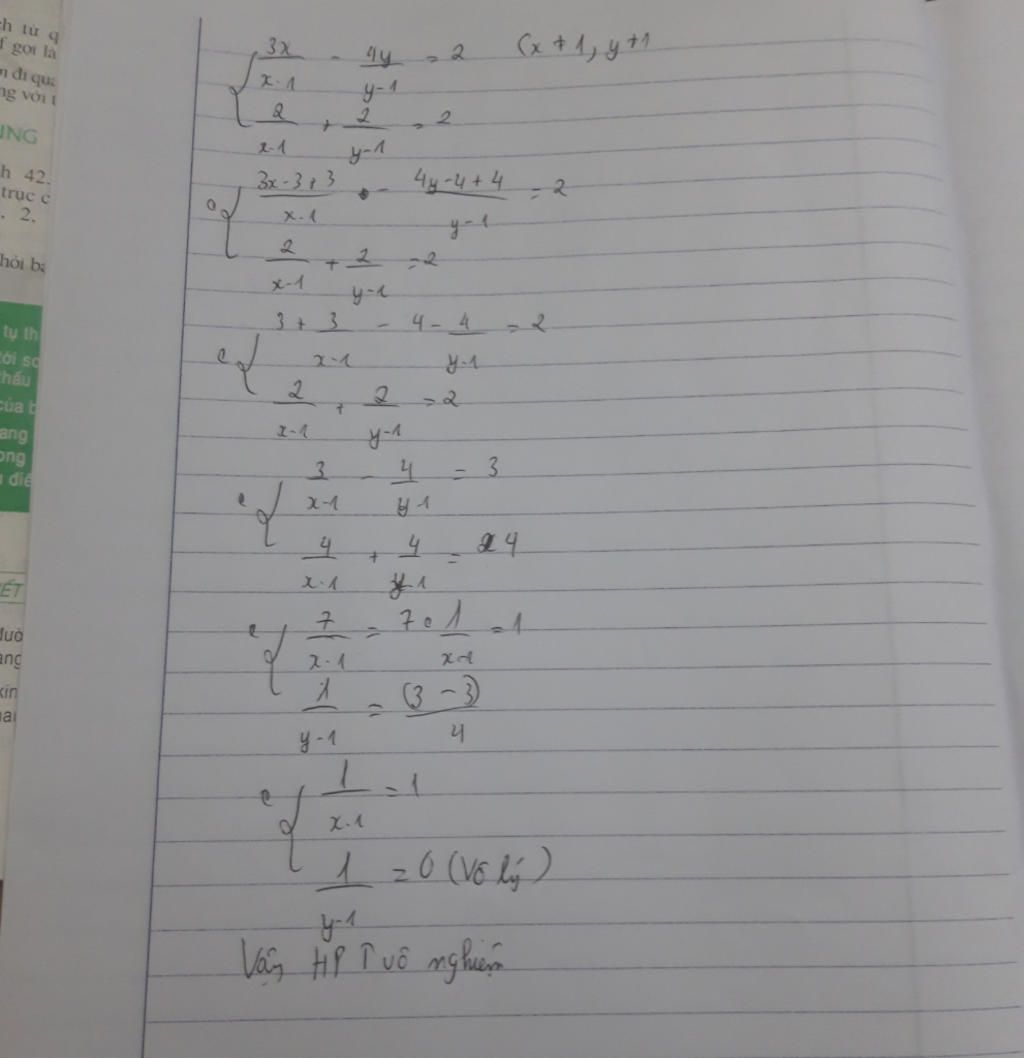 ch từ q
f gọi là
n đi qua
ng với t
ING
h 42.
trục c
, 2,
hỏi bạ
tụ th
tới sc
thấu
của b
ang
ong
điể
ẾT
đườ
ang
kín
ai
{ 3x/(x-1) - 4y/(y-1) = 2 (x ≠ 1, y ≠ 1
2/(x-1) + 2/(y-1) = 2
{ (3x-3+3)/(x-1) - (4y-4+4)/(y-1) = 2
2/(x-1) + 2/(y-1) = 2
{ 3 + 3/(x-1) - 4 - 4/(y-1) = 2
2/(x-1) + 2/(y-1) = 2
{ 3/(x-1) - 4/(y-1) = 3
4/(x-1) + 4/(y-1) = 4
{ 7/(x-1) = 7 ⇔ 1/(x-1) = 1
1/(y-1) = (3-3)/4
{ 1/(x-1) = 1
1/(y-1) = 0 (Vô lý)
Vậy HPT vô nghiệm